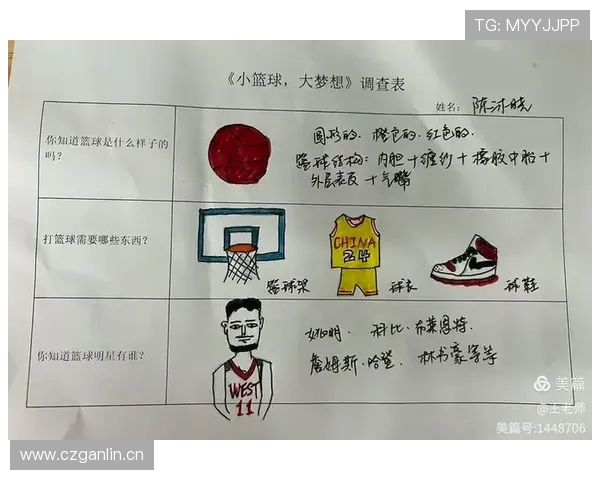 TG: MYYJJPP
《小篮球，大梦想》调查表
姓名：陈沐晓
你知道篮球是什么样子的
吗？
圆形的、橙色的、红色的、
篮球结构：内胆＋缠纱＋橡胶中胎＋
外层表皮＋气嘴
打篮球需要哪些东西？
CHINA
24
篮球架
球衣
球鞋
你知道篮球明星有谁？
姚明、科比·布莱恩特、
詹姆斯·哈登、林书豪等等
WEST
11
美篇
@王老师
美篇号:1448706
www.czganlin.cn